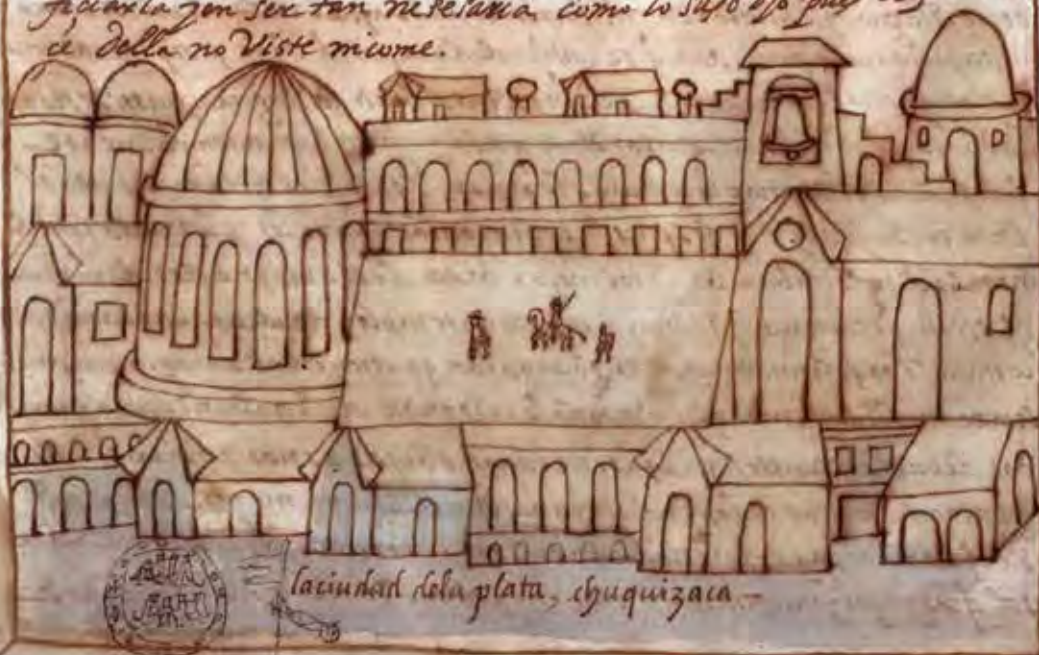 en ser tan nesesaria como lo suso
della no Viste nicome.
laciudad dela plata, chuquizaca –